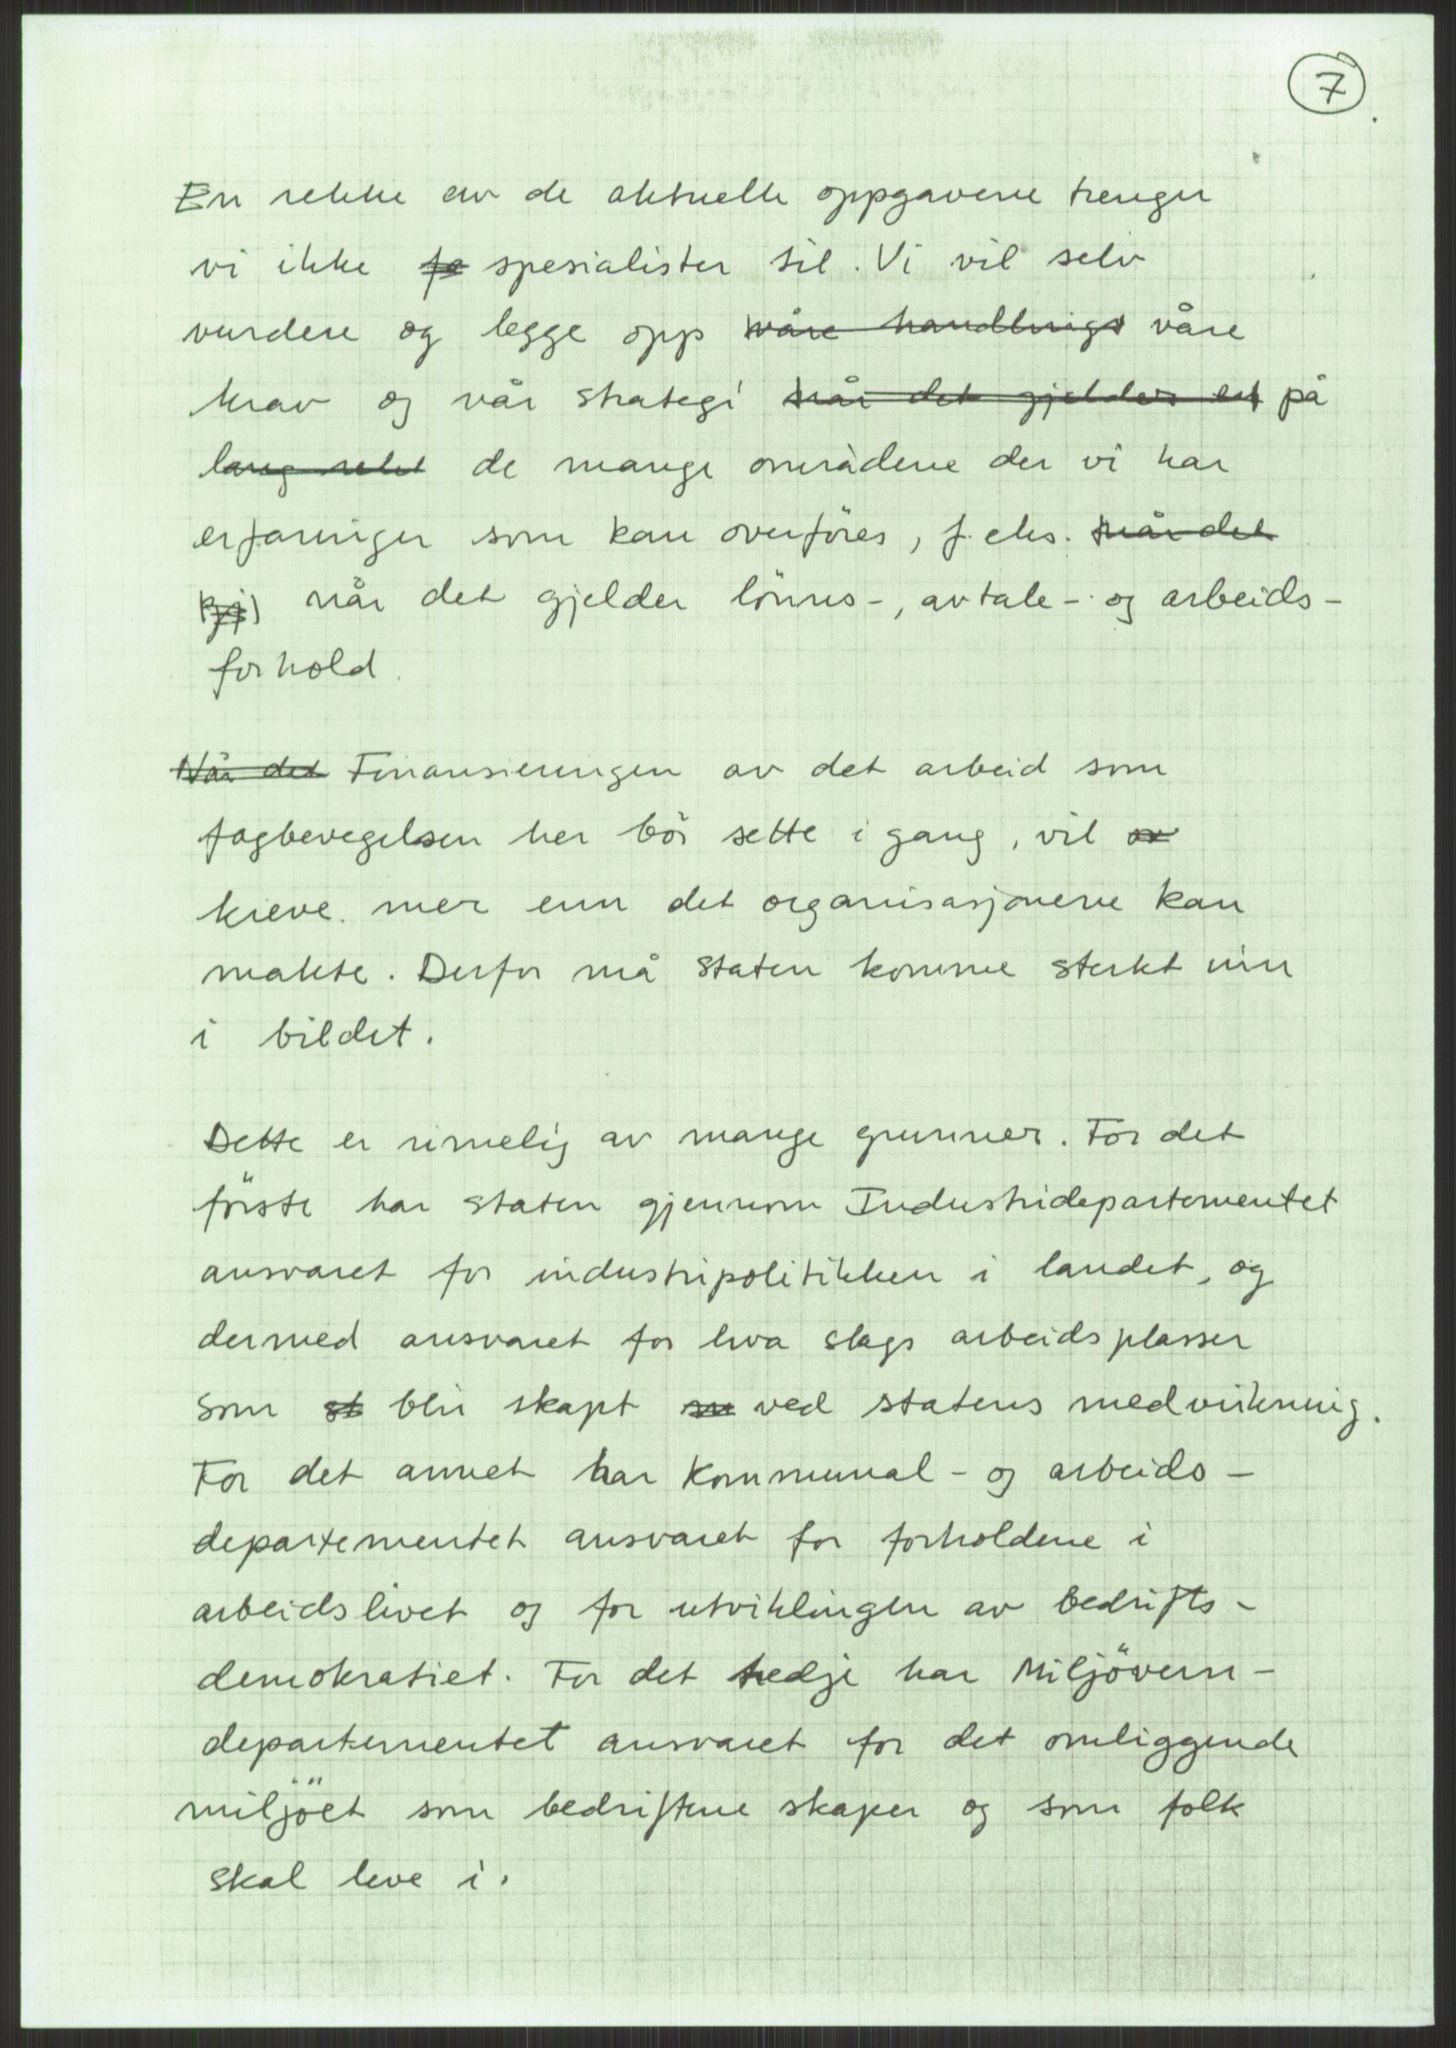 7
En rekke av de aktuelle oppgavene trenger
vi ikke fo spesialister til. Vi vil selv
vurdere og legge opp våre handlings våre
krav og vår strategi når det gjelder en på
lang rekke de mange områdene der vi har
erfaringer som kan overföres, f. eks. når det
gj når det gjelder lönns-, avtale- og arbeids-
forhold.
Når det Finansieringen av det arbeid som
fagbevegelsen her bör sette i gang, vil ov
kreve mer enn det organisasjonene kan
makte. Derfor må staten komme sterkt inn
i bildet.
Dette er rimelig av mange grunner. For det
förste har staten gjennom Industridepartementet
ansvaret for industripolitikken i landet, og
dermed ansvaret for hva slags arbeidsplasser
som st blir skapt su ved statens medvirkning.
For det annet har Kommunal- og arbeids-
departementet ansvaret for forholdene i
arbeidslivet og for utviklingen av bedrifts-
demokratiet. For det tredje har Miljövern-
departementet ansvaret for det omliggende
miljöet som bedriftene skaper og som folk
skal leve i.